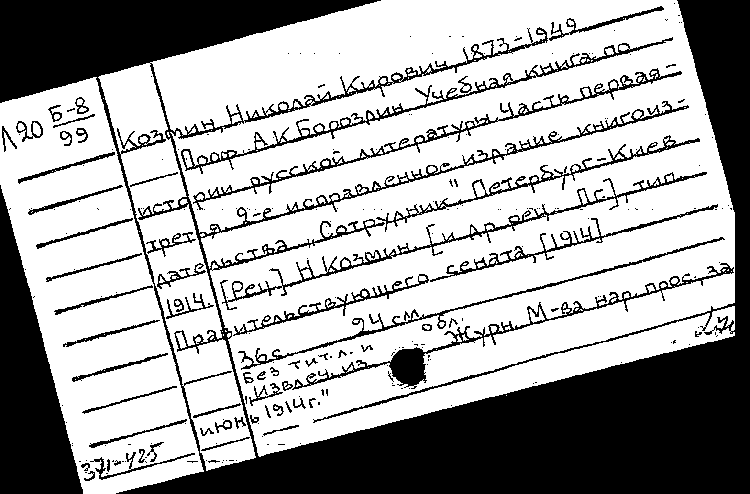 Л20 Б-8
99
Козмин, Николай Кирович, 1873-1949
Проф. А К Бороздин Учебная книга по
истории русской литературы. Часть первая-
третья. 2-е исправленное издание книгоиз-
дательства „Сотрудник". Петербург-Киев
1914. [Рец.] Н Козмин. [и др рец. Пс], тип.
Правительствующего сената, [1914]
36с. 24 см.
Без тит.л. и обл.
„Извлеч. из Журн. М-ва нар. прос., за
июнь 1914г."
371-425